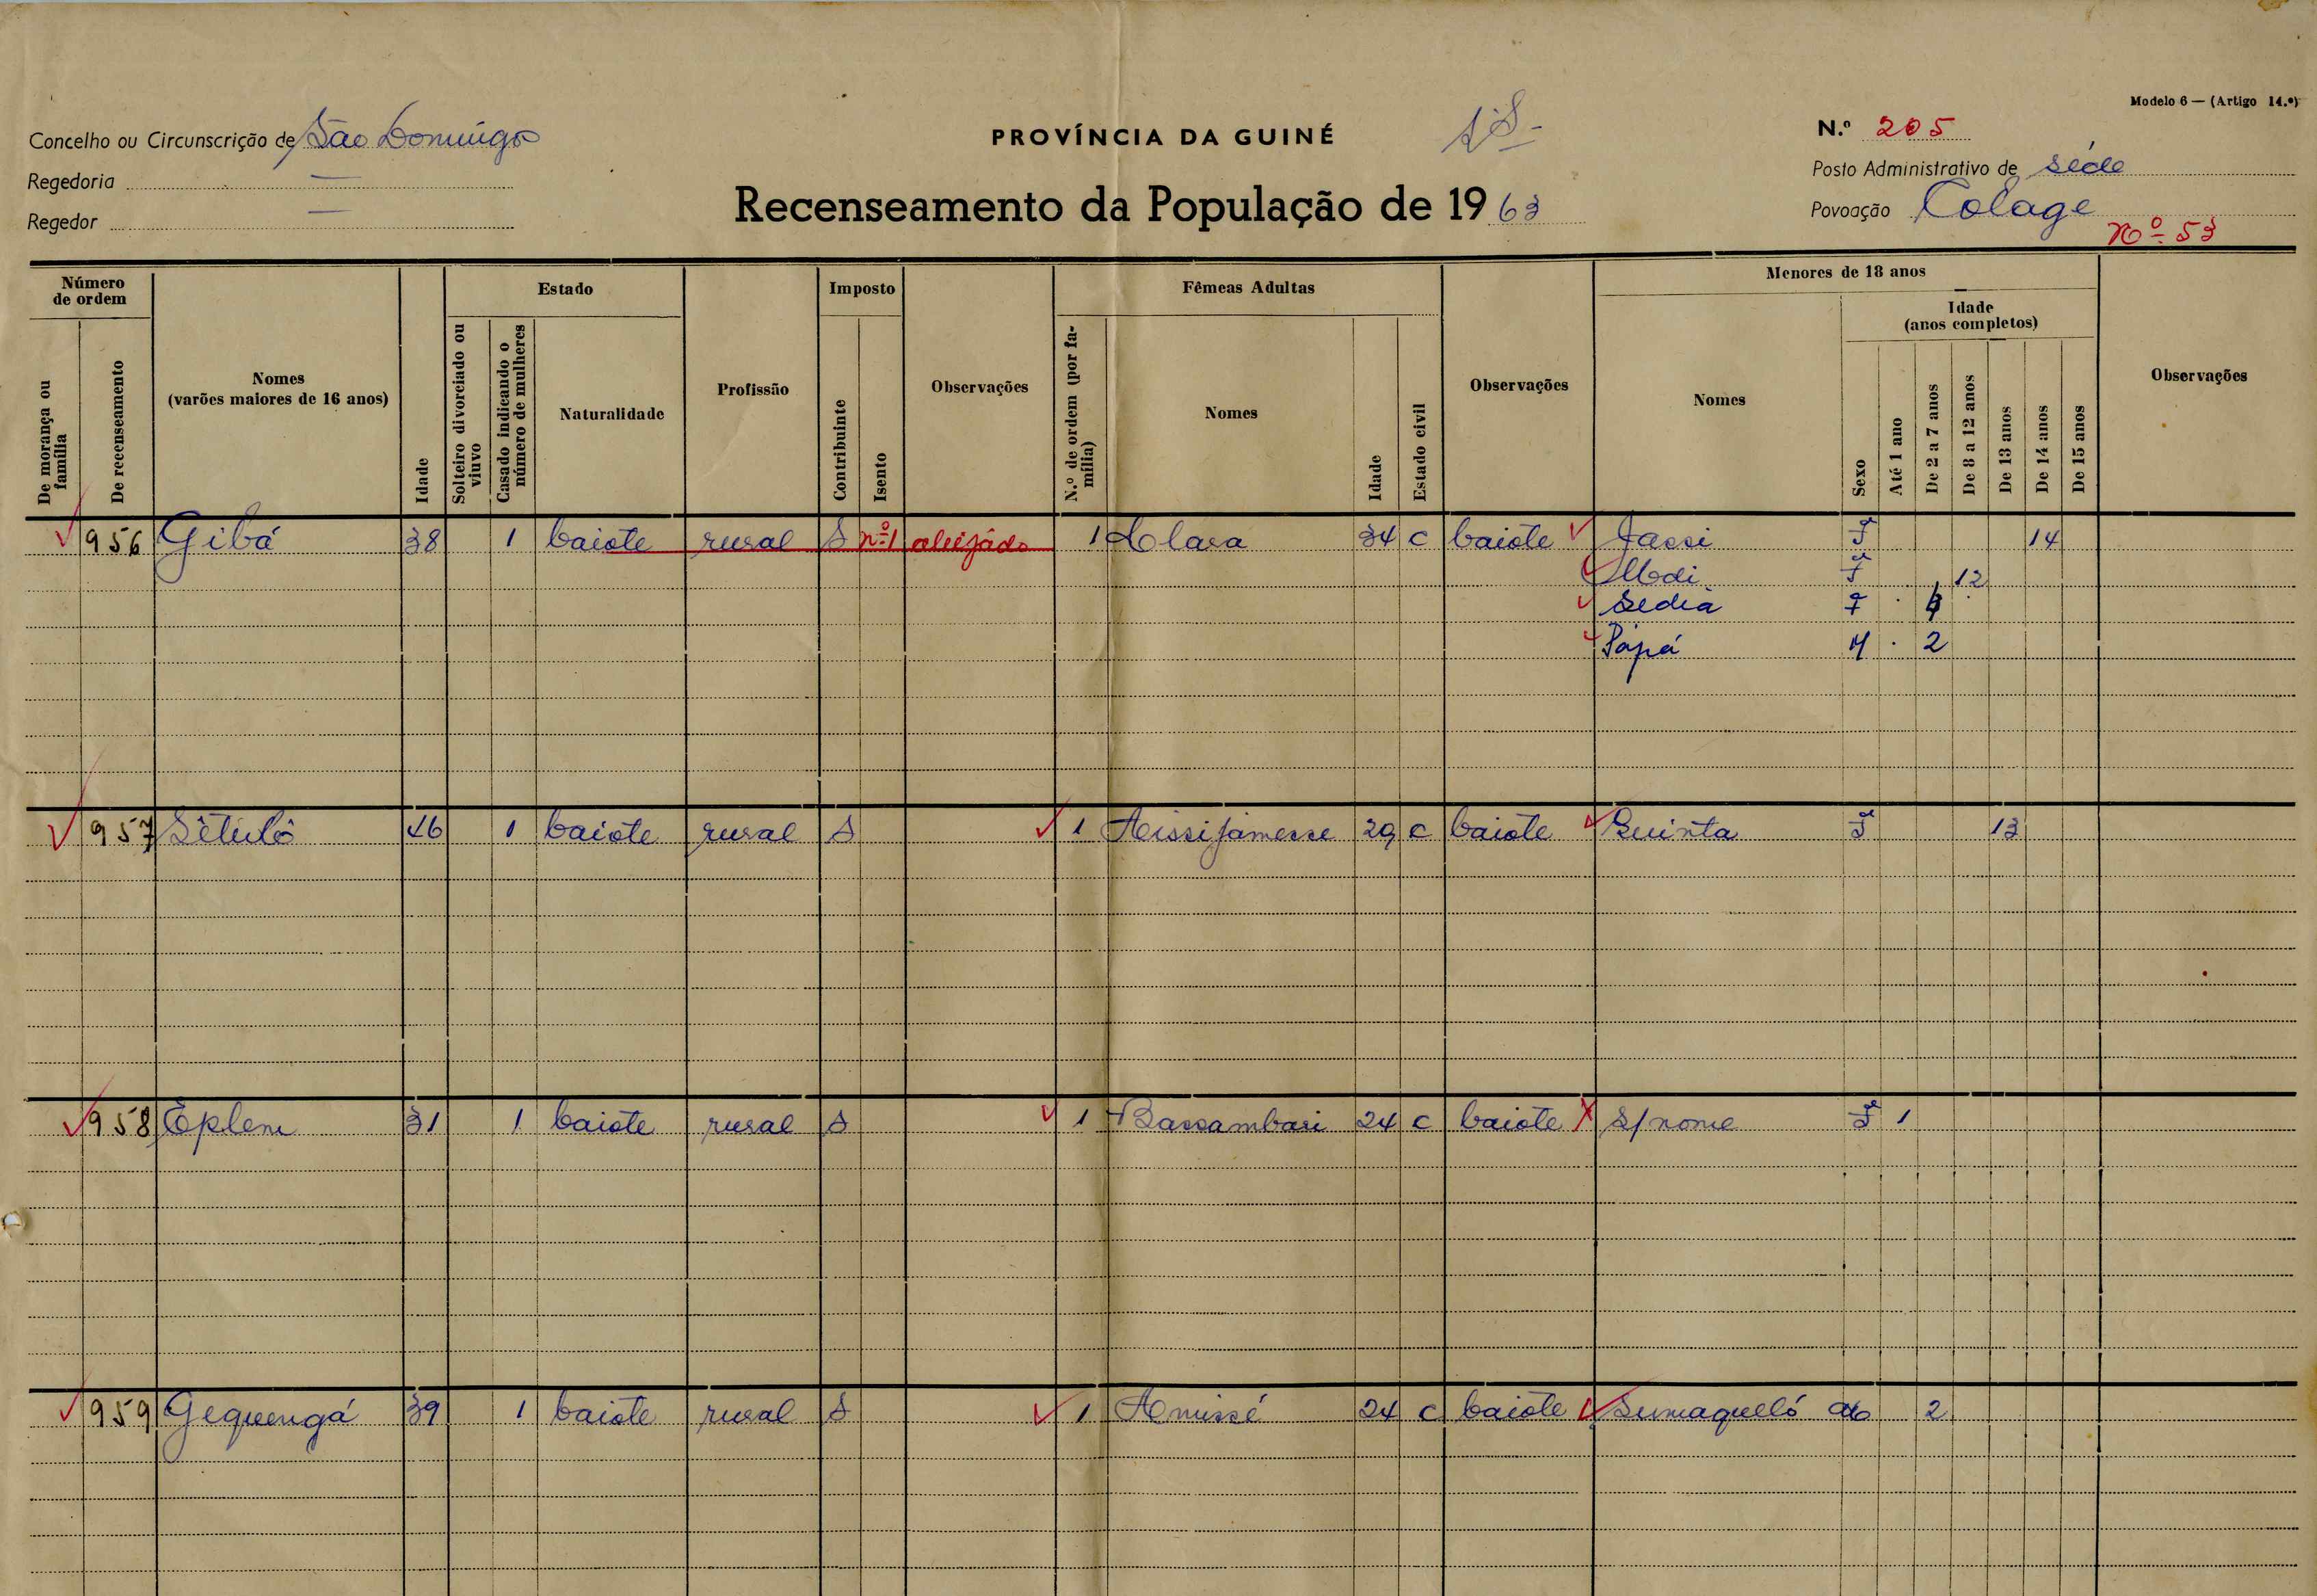 Modelo 6 — (Artigo 14.º)
Concelho ou Circunscrição de São Domingos
PROVÍNCIA DA GUINÉ
N.º 205
Regedoria —
Posto Administrativo de séde
Regedor —
Recenseamento da População de 1963
Povoação Colage
Nº 53
Número de ordem
De morança ou família
De recenseamento
Nomes (varões maiores de 16 anos)
Idade
Estado
Solteiro divorciado ou viuvo
Casado indicando o número de mulheres
Naturalidade
Profissão
Imposto
Contribuinte
Isento
Observações
Fêmeas Adultas
N.º de ordem (por família)
Nomes
Idade
Estado civil
Observações
Menores de 18 anos
Nomes
Sexo
Idade (anos completos)
Até 1 ano
De 2 a 7 anos
De 8 a 12 anos
De 13 anos
De 14 anos
De 15 anos
Observações
956 Gibá 38 1 baiote rural S nº1 aleijado 1 Clara 34 c baiote Jassi F 14
Modi F 12
Sedia F
Pápá M 2
957 Sêtulô 46 1 baiote rural S 1 Aissijamesse 29 c baiote Quinta F 13
958 Eplem 31 1 baiote rural S 1 Bassambari 24 c baiote s/nome F 1
959 Gequengá 39 1 baiote rural S 1 Amissé 24 c baiote Sumaqueló M 2